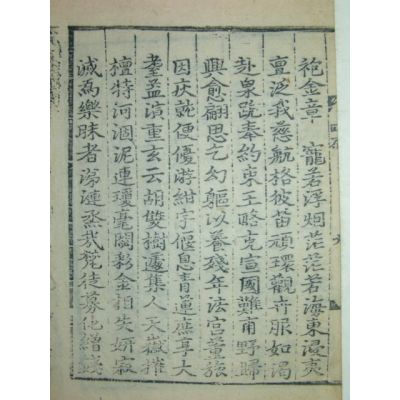 袍金章 寵若浮烟茫茫若海東浸夷
亶泛我慈航格彼苗頑環觀卉服如渴
卦泉旄奉約束王略克宣國難甯野歸
興愈翩思乞幻軀以養殘年法宮董旅
因疾就便優游紺宇偃息青蓮庶享大
耋孟演重玄云胡雙樹遽集人天嶽摧
檀特河涸泥連瓊毫閟彩金相失妍寂
滅為樂昧者涕漣烝哉髡徒募他繒錢